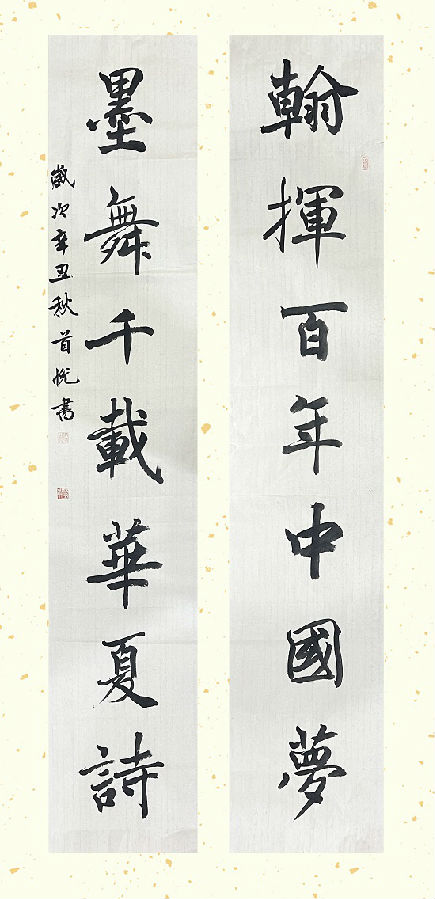 翰揮百年中國夢
墨舞千載華夏詩
歲次辛丑秋首悅書